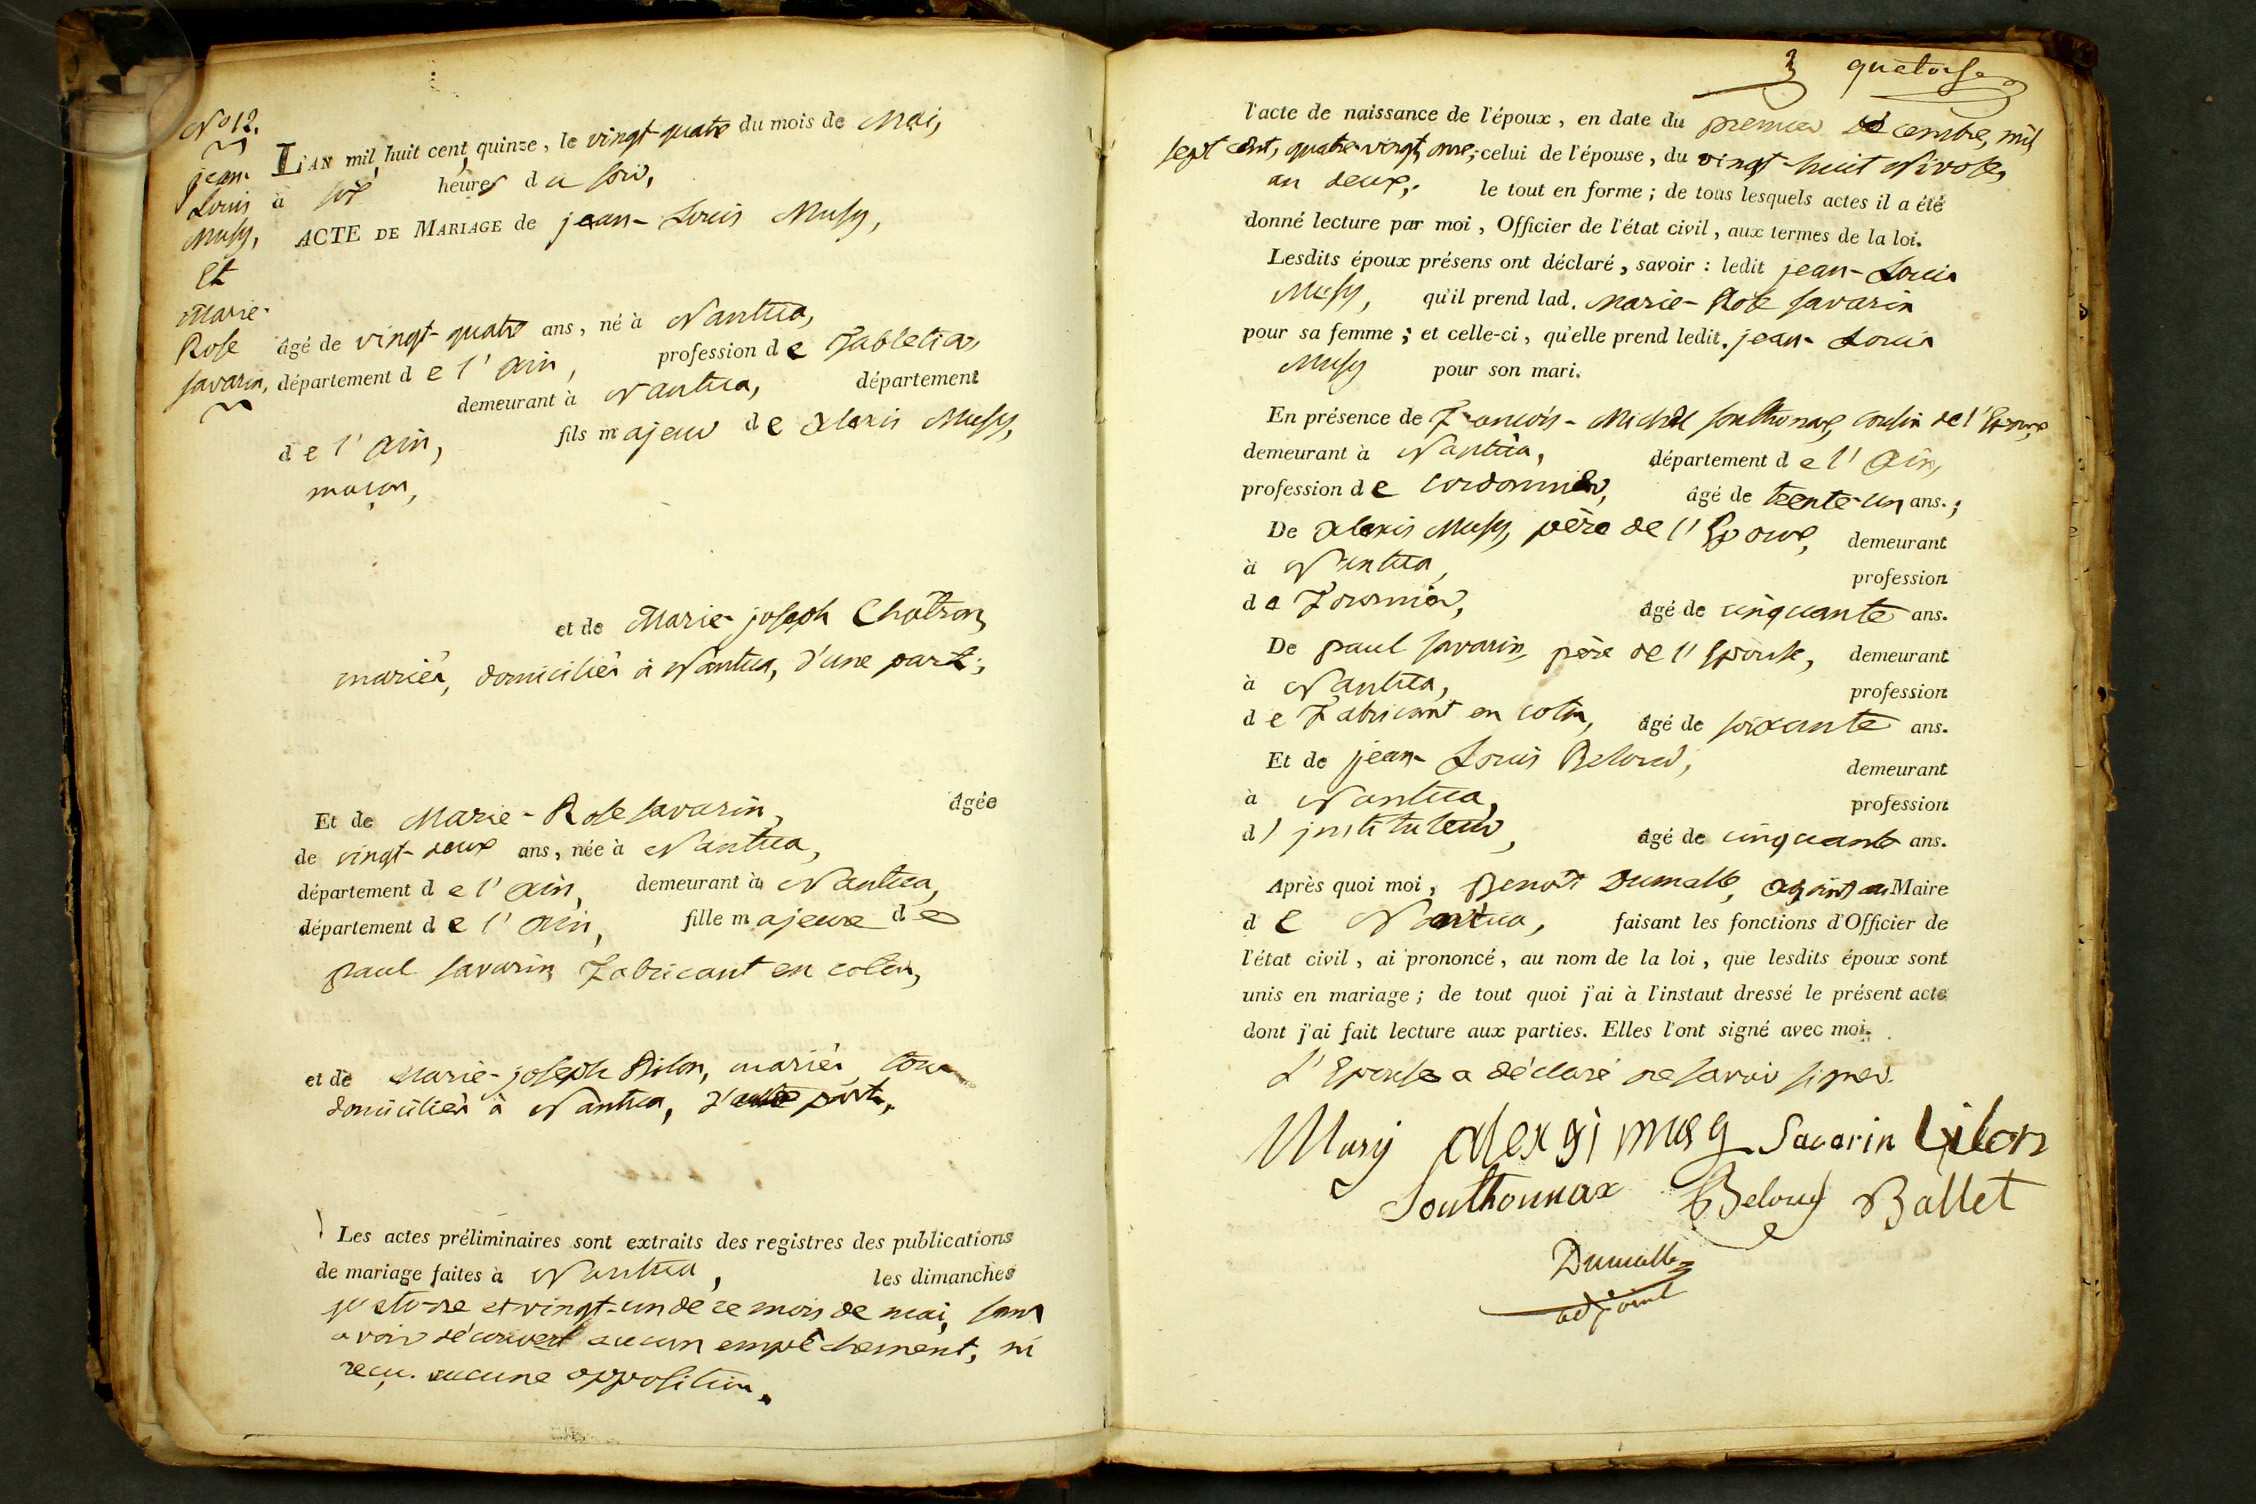 No 12.
jean
Louis
Musy,
Et
Marie-
Rose
Savarin,
L'AN mil huit cent quinze, le vingt-quatre du mois de Mai,
à six heures du soir,
ACTE DE MARIAGE de jean-Louis Musy,
âgé de vingt-quatre ans, né à Nantua,
département de l'Ain, profession de Tabletier,
demeurant à Nantua, département
de l'Ain, fils majeur de Alexis Musy,
maçon,
et de Marie-joseph Chatron,
mariés, domiciliés à Nantua, d'une part;
Et de Marie-Rose Savarin, âgée
de vingt-deux ans, née à Nantua,
département de l'Ain, demeurant à Nantua,
département de l'Ain, fille majeure de
paul Savarin, Fabricant en coton,
et de Marie-joseph Bilon, mariés, tous
domiciliés à Nantua, d'autre part,
Les actes préliminaires sont extraits des registres des publications
de mariage faites à Nantua, les dimanches
quatorze et vingt-un de ce mois de mai, sans
avoir découvert aucun empêchement, ni
reçu aucune opposition.
3 quatorse
l'acte de naissance de l'époux, en date du premier Décembre, mil
sept cent, quatre-vingt, onze; celui de l'épouse, du vingt-huit Nivose,
an deux; le tout en forme; de tous lesquels actes il a été
donné lecture par moi, Officier de l'état civil, aux termes de la loi.
Lesdits époux présens ont déclaré, savoir: ledit jean-Louis
Musy, qu'il prend lad. Marie-Rose Savarin
pour sa femme; et celle-ci, qu'elle prend ledit. jean-Louis
Musy pour son mari.
En présence de François-Michel Southonnax, cousin de l'Epoux,
demeurant à Nantua, département de l'Ain,
profession de cordonnier, âgé de trente-un ans.;
De Alexis Musy, père de l'Epoux, demeurant
à Nantua, profession
de Fournier, âgé de cinquante ans.
De paul Savarin, père de l'Epouse, demeurant
à Nantua, profession
de Fabricant en coton, âgé de soixante ans.
Et de jean-Louis Beloud, demeurant
à Nantua, profession
d'instituteur, âgé de cinquante ans.
Après quoi moi, Benoît Dumalle, adjoint au Maire
de Nantua, faisant les fonctions d'Officier de
l'état civil, ai prononcé, au nom de la loi, que lesdits époux sont
unis en mariage; de tout quoi j'ai à l'instaut dressé le présent acte
dont j'ai fait lecture aux parties. Elles l'ont signé avec moi.
L'Epouse a déclaré ne savoir signer.
Musy alexsi musy Savarin bilon
Southonnax Beloud Ballet
Dumalle
adjoint